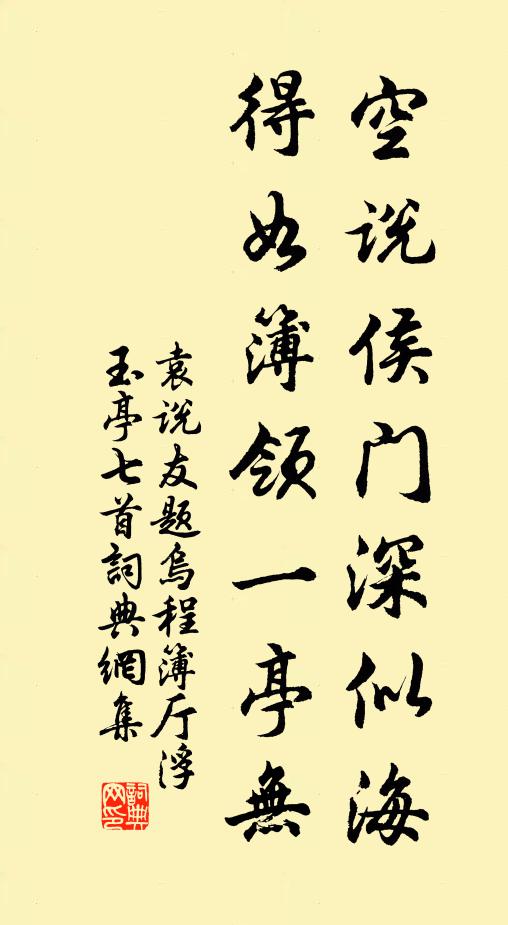 空说侯门深似海
得如簿领一亭無
袁说友题烏程簿厅浮
玉亭七首詞典網集
詞典網印